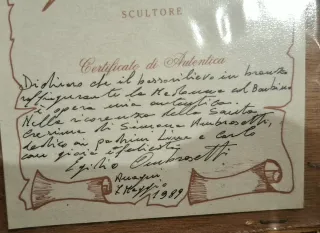 SCULTORE
Certificato di Autentica
Dichiaro che il bassorilievo in bronzo
raffigurante la Madonna col Bambino
è opera mia autentica.
Nella ricorrenza della Santa
Cresima di Simona Ambrosetti,
dedico ai padrini Lina e Carlo
con gioia
Egidio Ambrosetti
Anagni,
7 Maggio 1989